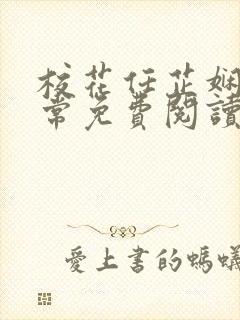 校花任芷娴
常免費閱讀
愛上書的螞蟻